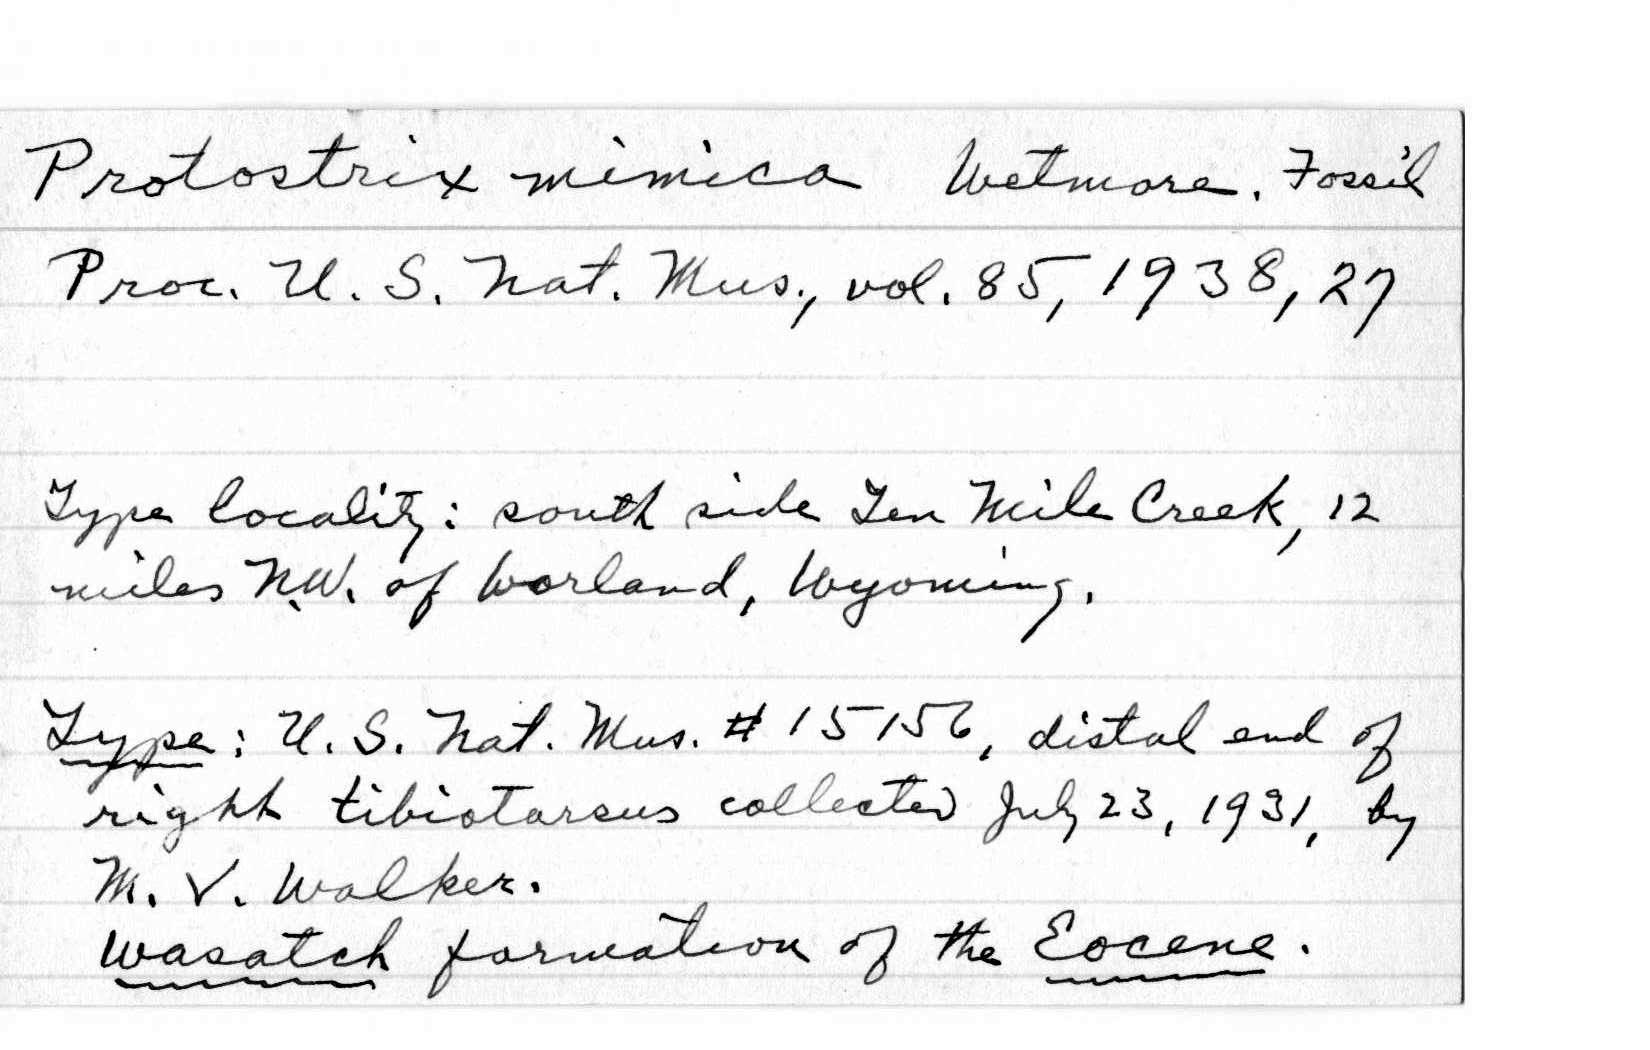 Protostrix mimica Wetmore. Fossil
Proc. U. S. Nat. Mus., vol. 85, 1938, 27
Type locality: south side Ten Mile Creek, 12
miles N.W. of Worland, Wyoming.
Type: U. S. Nat. Mus. # 15156, distal end of
right tibiotarsus collected July 23, 1931, by
M. V. Walker.
Wasatch formation of the Eocene.